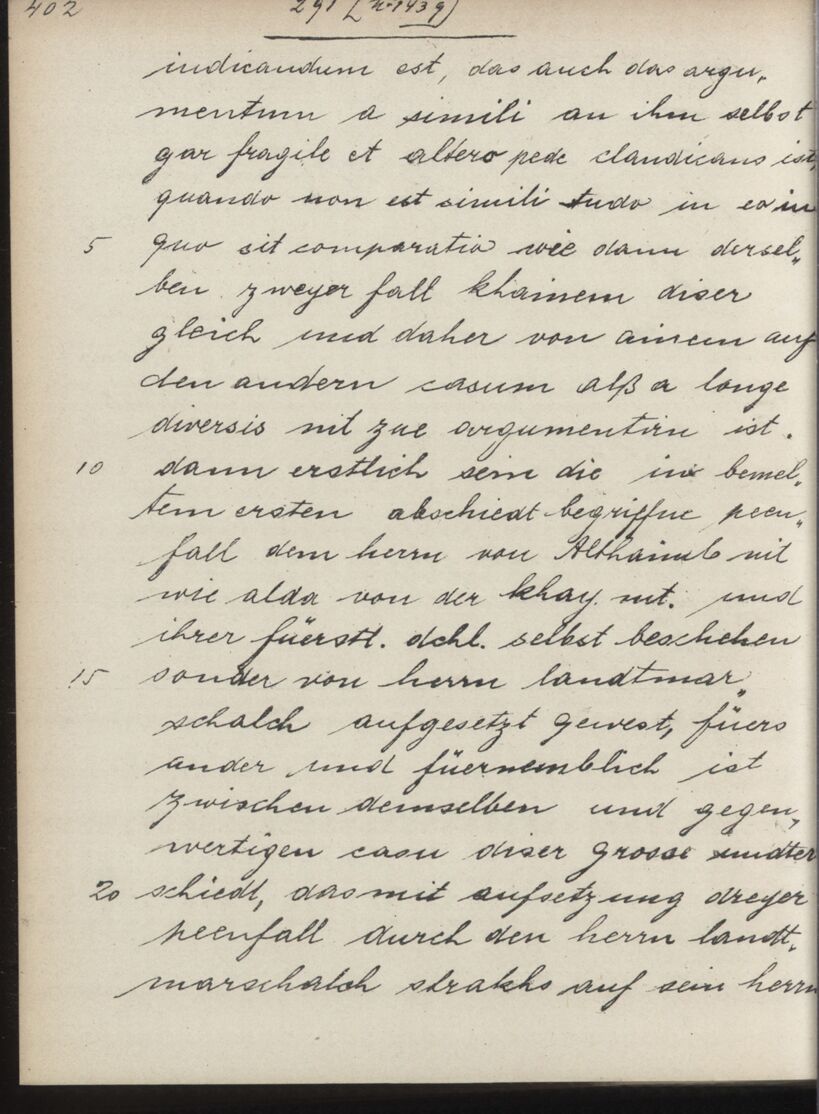 402 291 [r-143g)
indicandum est, das auch das argu„
mentum a simili an ihm selbst
gar fragile et altero pede claudicans ist,
quando non est simili tudo in eo in
5 quo sit comparatio wie dann dersel„
ben zweyer fall khainem diser
gleich und daher von ainem auf
den andern casum alß a longe
diversis nit zue argumentirn ist.
10 dann erstlich sein die in bemel„
tem ersten abschiedt begriffne peen„
fall dem herrn von Althaimb nit
wie alda von der khay. mt. und
ihrer füerstl. dchl. selbst beschehen
15 sonder von herrn landtmar„
schalch aufgesetzt gewest, füers
ander und füernemblich ist
zwischen demselben und gegen„
wertigen casu diser grosse undter
20 schiedt, das mit aufsetzung dreyer
peenfall durch den herrn landt„
marschalch strakhs auf sein herrn